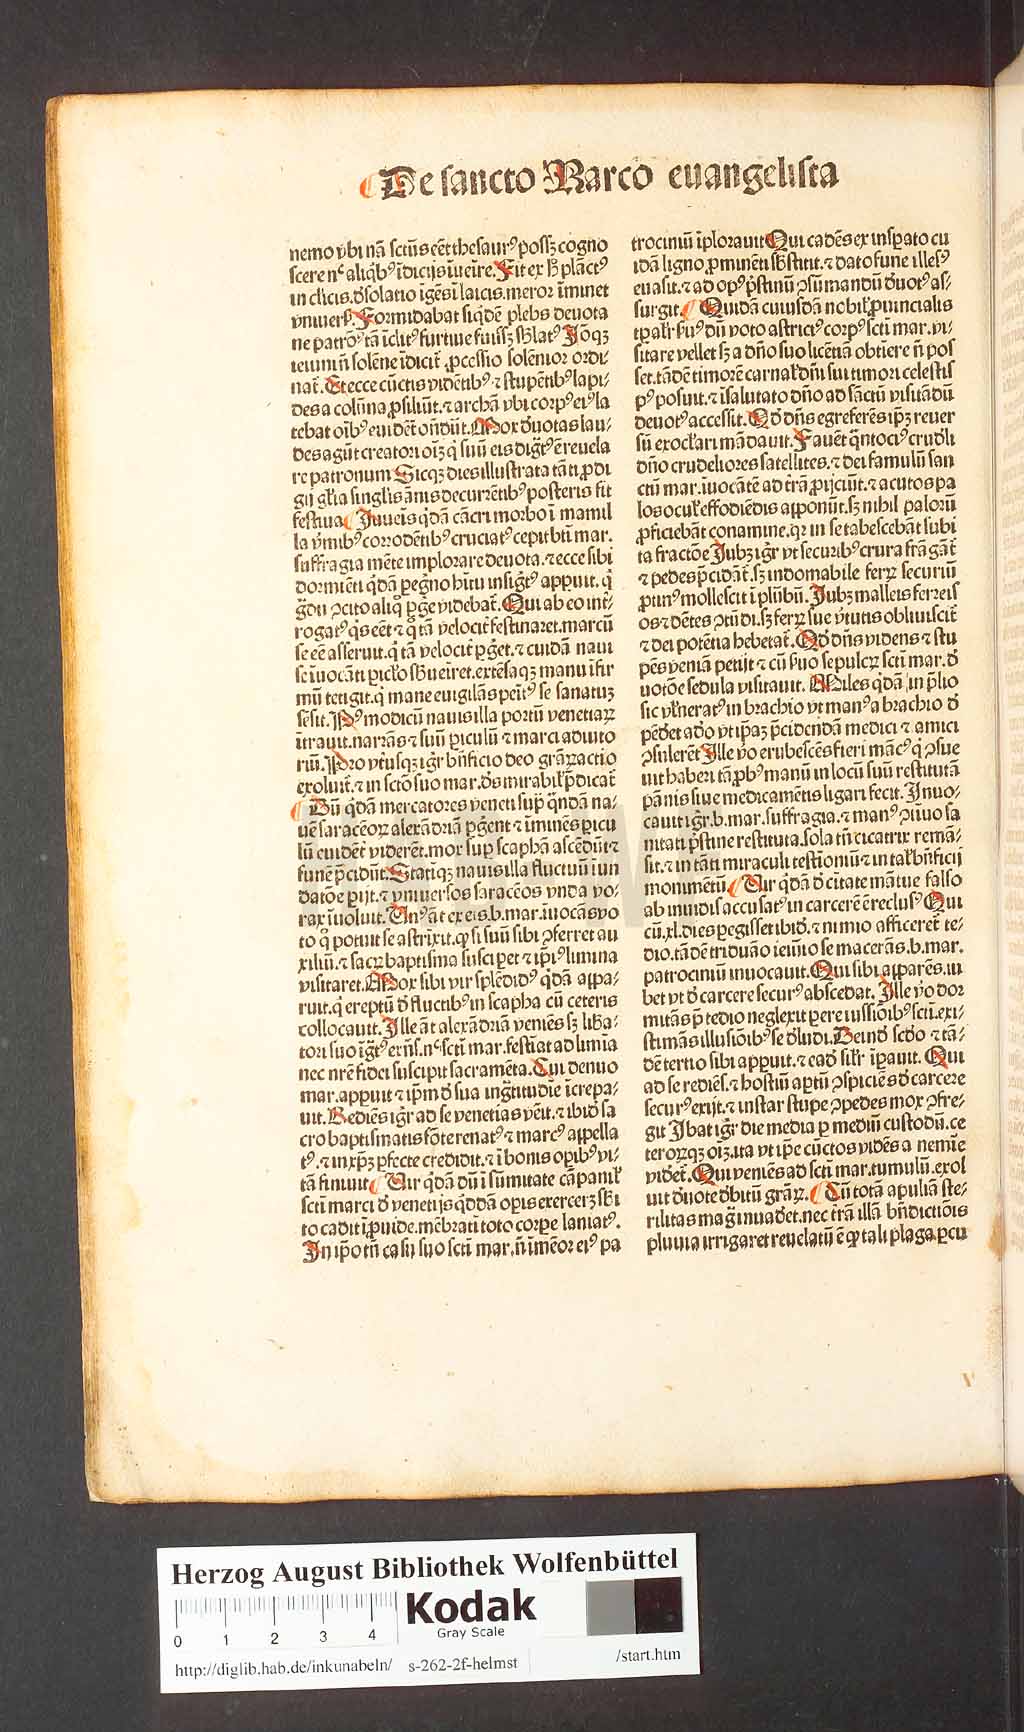 De sancto Marco euangelista
nemo vbi nā sctūs eēt thesaurꝰ possꝫ cogno
scere nᶜ aliqͥbꝰ īdicijs īueire. Fit ex hͦ plāctꝰ
in clicis. dsolatio īgēs ī laicis. meror īminet
Formidabat siqͥdē plebs deuota
ne patrōꝰ tā īclitꝰ furtiue fuissꝫ
ieiuniū solēne īdicit̄ ꝓcessio solēnior ordi
nat̄. Et ecce cūctis vidētibꝰ ⁊ stupētibꝰ lapi⸗
des a colūna ꝓsiliūt. ⁊ archā vbi corpꝰ eiꝰ la
tebat oībꝰ euidēt oñdūt. Mox dūotas lau⸗
des agūt creatori oīꝫ qͥ suū eis digͣtꝰ ē reuela
re patronum Sicqꝫ dies illustrata tāti ꝓdi
gij gl̄ia singl̄is ānis decurrētibꝰ posteris fit
festiua Juueīs qͥdā cācri morbo ī mamil
la v̄mibꝰ corrodētibꝰ cruciatꝰ cepit bt̄i mar.
suffragia mēte implorare deuota. ⁊ ecce sibi
dormiēti qͥdā pegͥno hītu insigͥtꝰ apparuit. qͥ
gͣdū ꝯcito aliqͦ ꝑgͤe videbat̄. Qui ab eo int̄⸗
rogatꝰ qͥs eēt ⁊ qͦ tā velocit̄ festinaret. marcū
se eē asseruit. qͥ tā velocit̄ ꝑgͤet. ⁊ cuidā naui
se īuocāti ꝑicl̄o sb̄ueīret. extēsaqꝫ manu īfir
mū tetigit. qͥ mane euigilās penitꝰ se sanatuꝫ
sēsit. Pꝰ modicū nauis illa portū venetiaꝝ
ītrauit. narrās ⁊ suū ꝑiculū ⁊ marci adiuto
riū. Pro vt̄usqꝫ igr̄ bn̄ficio deo gr̄aꝝ actio
exoluit̄. ⁊ in sctō suo mar. dn̄s mirabil̄ p̄dicat̄
Dū qͥdā mercatores veneti suꝑ qͣndā na⸗
uē saraceoꝝ alexādriā ꝑgͤent ⁊ īminēs ꝑicu
lū euidēt̄ viderēt. mox suꝑ scaphā ascēdūt ⁊
funē p̄cidūt. Statiqꝫ nauis illa fluctuū īun
datōe ꝑijt. ⁊ vniuersos saracēos vnda vo⸗
rax īuoluit. Vnꝰ āt ex eis. b. mar. īuocās vo
to qͦ potuit se astrīxit. qͥ si suū sibi ꝯferret au
xiliū. ⁊ sacꝝ baptisma suscipet ⁊ ipiꝰ limina
visitaret. Mox sibi vir splēdidꝰ qͥdā appa⸗
ruit. qͥ ereptū d̄ fluctibꝰ in scapha cū ceteris
collocauit. Ille āt alexādriā veniēs sꝫ liba⸗
tori suo īgͣtꝰ exn̄s. nᶜ scti mar. festiat ad limīa
nec nr̄e fidei suscipit sacrameta. Cui denuo
mar. apparuit ⁊ ip̄m d̄ sua ingͣtitudīe īcrepa⸗
uit. Rediēs igr̄ ad se venetias vēit. ⁊ ibid̄ sa
cro baptismatis fōte renatꝰ ⁊ marcꝰ appella
tꝰ. ⁊ in xp̄ꝫ ꝑfecte credidit. ⁊ ī bonis opibꝰ vi⸗
tā finiuit Vir qͥdā dū ī sumitate cāpanil̄
scti marci d̄ venetijs qͦddā opis exercerꝫ sb̄i
to cadit īꝓuide. mēbrati toto corpe laniatꝰ.
In ip̄o tn̄ casu suo scti mar. n̄ īmeōr eiꝰ pa
trociniū īplorauit Qui cadēs ex insꝑato cu
idā ligno ꝓminēti sb̄stitit. ⁊ dato fune illesꝰ
euasit. ⁊ ad opꝰ p̄stinū ꝯsūmandū d̄uotꝰ as⸗
surgit. Quidā cuiusdā nobil̄ ꝓuincialis
suꝰ dū voto astrictꝰ corpꝰ scti mar. vi⸗
sitare vellet sꝫ a dn̄o suo licētiā obtīere n̄ pos
set. tādē timorē carnal̄ dn̄i sui timori celestis
pꝰposuit. ⁊ īsalutato dn̄o ad sāctū visitādū
deuotꝰ accessit. Qd̄ dn̄s egre ferēs ip̄ꝫ reuer
sū exocl̄ari mādauit. Fauēt qͣntociꝰ crudl̄i
dn̄o crudeliores satellites. ⁊ dei famulū san
ctū mar. īuocātē ad trā ꝓijciūt. ⁊ acutos pa
los ocul̄ effodiēdis apponūt. sꝫ nihil paloꝝ
ꝓficiebāt conamine. qꝛ in se tabescebāt subi
ta fractōe Jubꝫ igr̄ vt securibꝰ crura frāgāt̄
⁊ pedes p̄cidāt̄. sꝫ indomabile ferꝝ securiū
ꝓtinꝰ mollescit ī plūbū. Jubꝫ malleis ferreis
os ⁊ dētes ꝯtūdi. sꝫ ferꝝ sue v̄tutis obliuiscit̄
⁊ dei potētia hebetat̄. Qd̄ dn̄s vidēs ⁊ stu
pēs veniā petijt ⁊ cū suo sepulcꝝ scti mar. d̄
uotōe sedula visitauit. Miles qͥdā in p̄lio
sic vl̄neratꝰ in brachio vt manꝰ a brachio d̄
pēdet ad qͦ vt ip̄aꝫ p̄cidendā medici ⁊ amici
ꝯsuleret Ille vo erubescēs fieri mācꝰ qͥ ꝯsue
uit haberi tā ꝓbꝰ manū in locū suū restitutā
pānis siue medicamētis ligari fecit. Inuo⸗
cauit igr̄. b. mar. suffragia. ⁊ manꝰ ꝯtinuo sa
nitati p̄stine restituta. sola tn̄ cicatrix remā⸗
sit. ⁊ in tāti miraculi testīoniū ⁊ in tal̄ bn̄ficij
monimētū. Vir qͥdā d̄ ciuitate mātue falso
ab inuidis accusatꝰ in carcerē ē reclusꝰ Qui
cū. xl. dies ꝑegisset ibid̄. ⁊ nimio afficeret̄ te⸗
dio. tādē triduāo ieiuīo se macerās. b. mar.
patrociniū inuocauit. Qui sibi apparēs. iu
bet vt d̄ carcere securꝰ abscedat. Ille vo dor
mitās p̄ tedio neglexit ꝑere iussiōibꝰ scti. exi⸗
stimās illusiōibꝰ se d̄ludi. Deind̄ scd̄o ⁊ tā⸗
dē tertio sibi apparuit. ⁊ ead̄ sil̄r īꝑauit. Qui
ad se rediēs. ⁊ hostiū aptū ꝯspiciēs d̄ carcere
securꝰ exijt. ⁊ instar stupe ꝯpedes mox ꝯfre⸗
git Ibat igr̄ die media ꝑ mediū custodū. ce
teroꝝqꝫ oīꝫ. ita vt ip̄e cūctos vidēs a nemīe
videt̄. Qui veniēs ad scti mar. tumulū. exol
uit d̄uote d̄bitū grāꝝ. Cū totā apuliā ste⸗
rilitas magͣ inuad̄et. nec t̄rā illā bn̄dictiōis
pluuia irrigaret reuelatū ē qͥ tali plaga ꝑcu
Herzog August Bibliothek Wolfenbüttel
Kodak
Gray Scale
0 1 2 3 4
http://diglib.hab.de/inkunabeln/ s-262-2f-helmst /start.htm